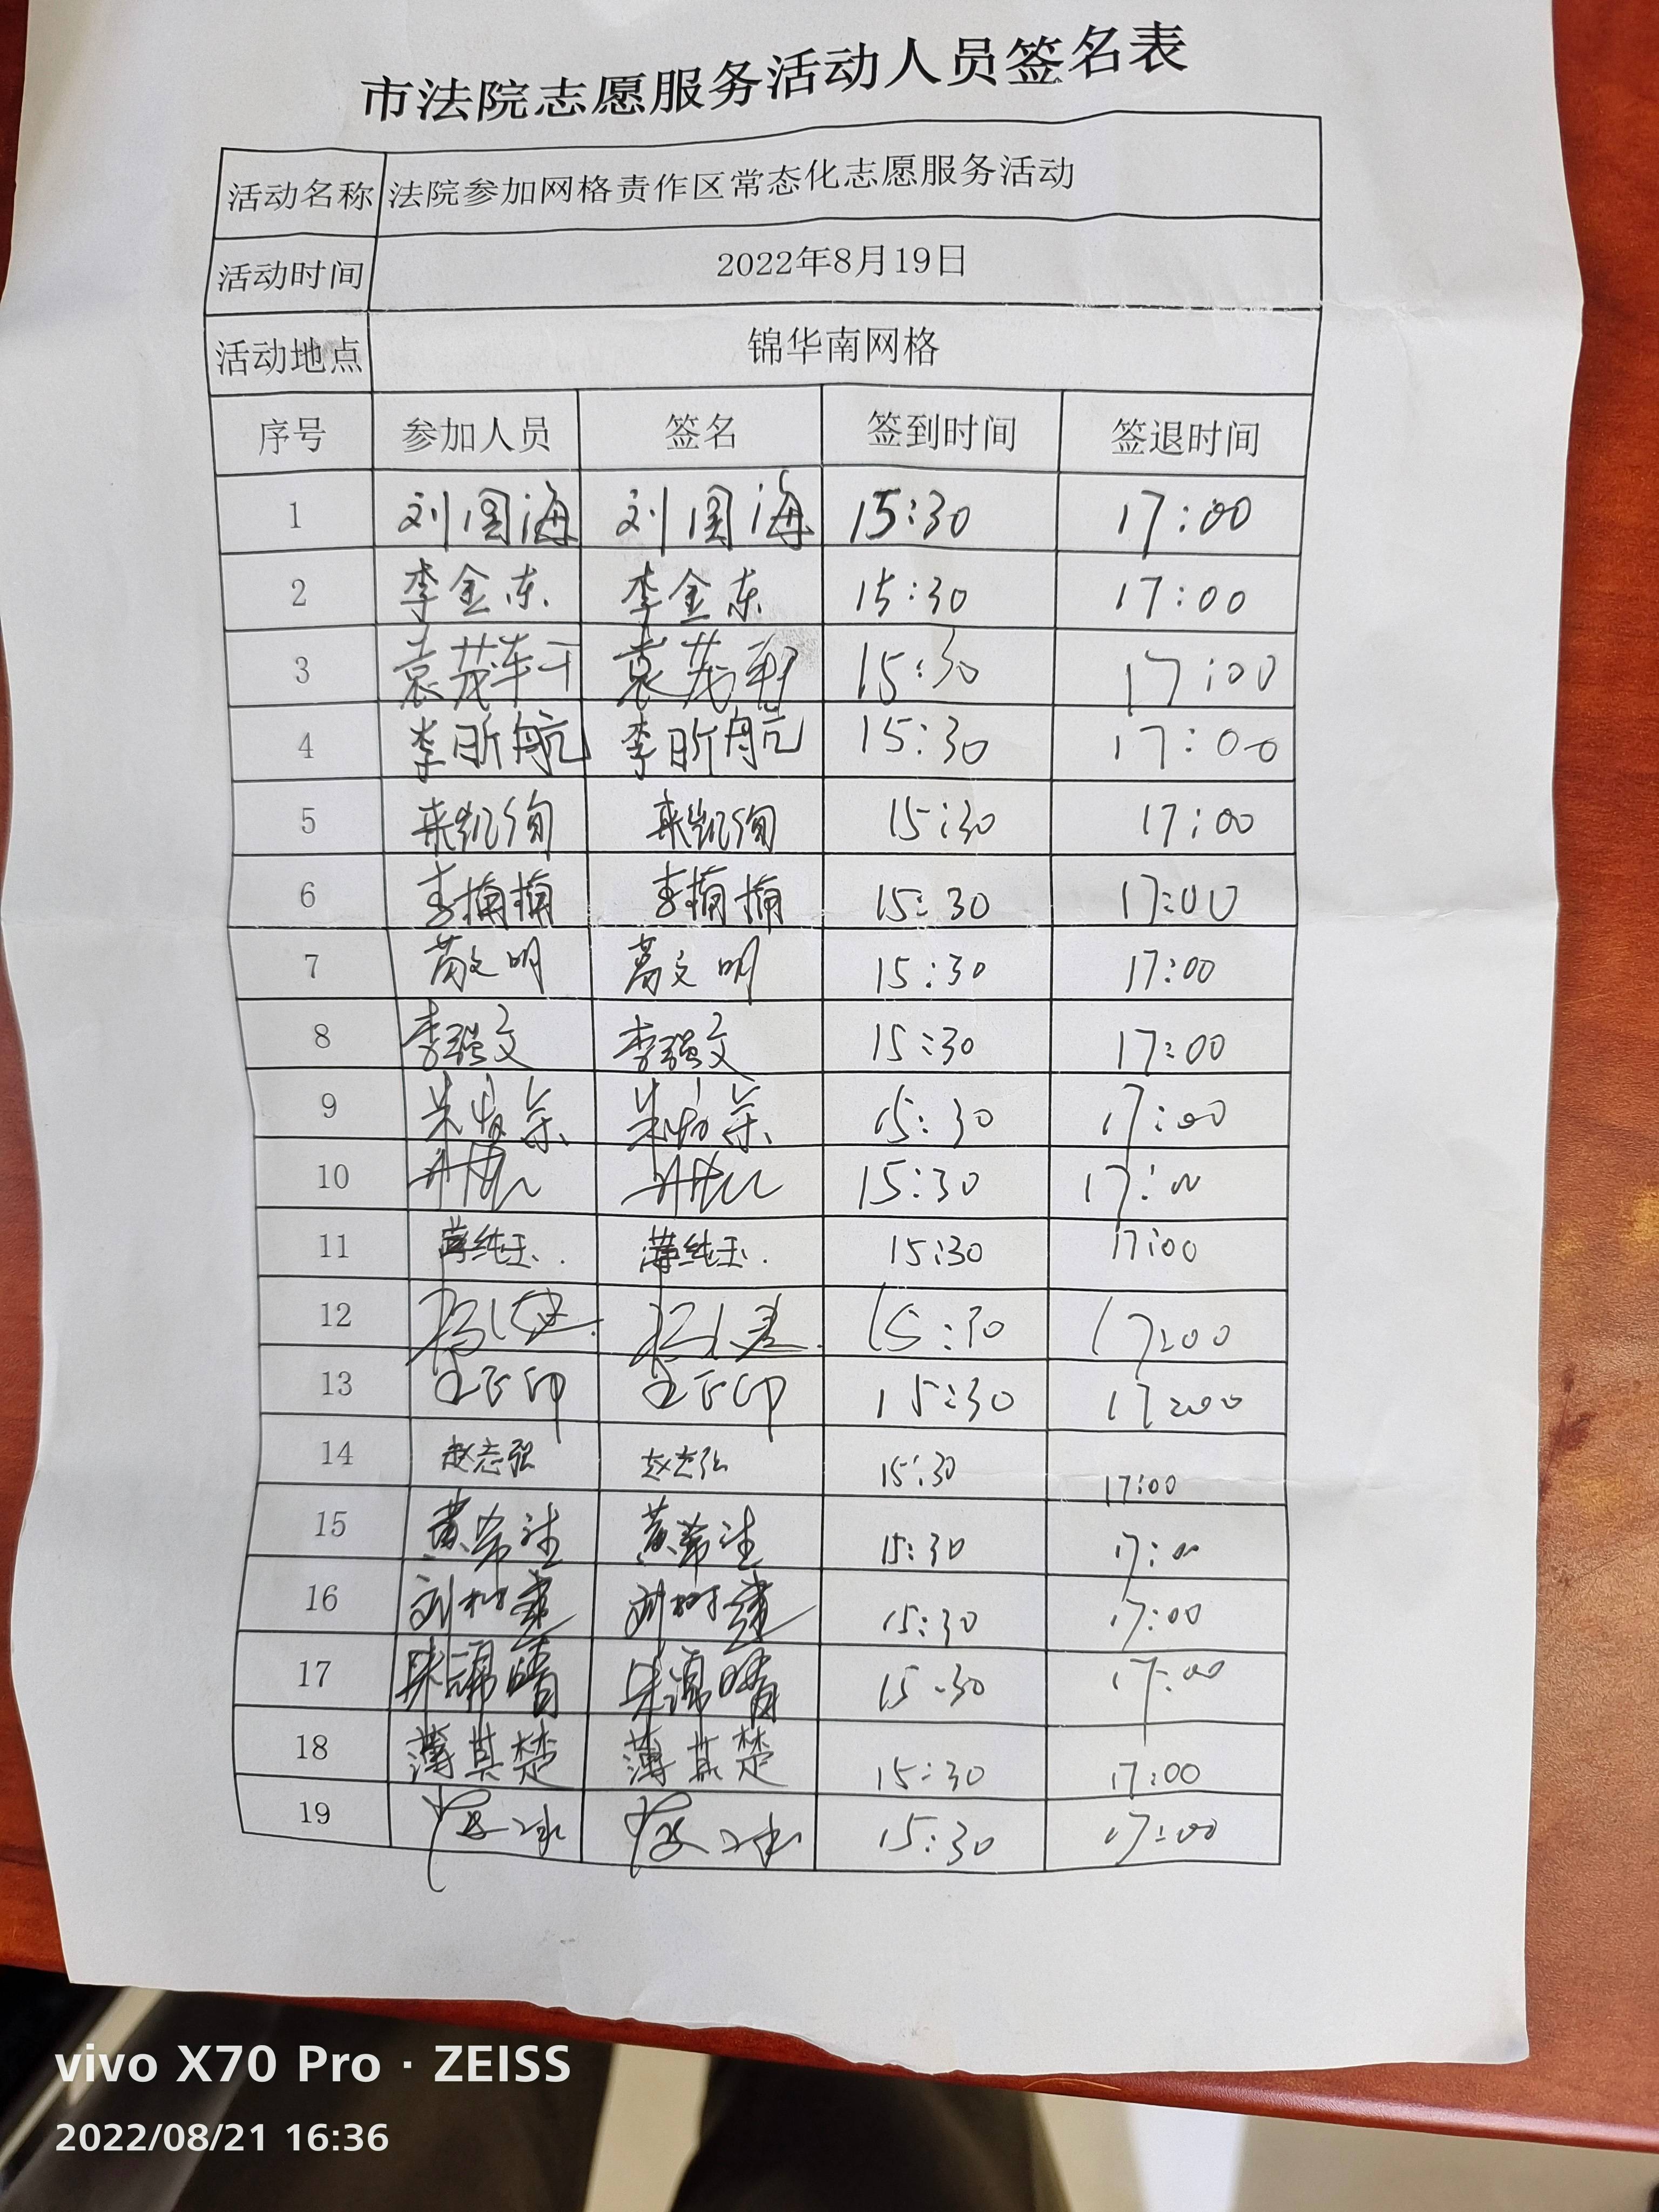 市法院志愿服务活动人员签名表
活动名称 法院参加网格责作区常态化志愿服务活动
活动时间 2022年8月19日
活动地点 锦华南网格
序号 参加人员 签名 签到时间 签退时间
1 刘国海 刘国海 15:30 17:00
2 李金东 李金东 15:30 17:00
3 袁茂军 袁茂军 15:30 17:00
4 李昕航 李昕航 15:30 17:00
5 15:30 17:00
6 李楠楠 李楠楠 15:30 17:00
7 葛文明 葛文明 15:30 17:00
8 李强文 李强文 15:30 17:00
9 15:30 17:00
10 15:30 17:00
11 薄纯玉 薄纯玉 15:30 17:00
12 15:30 17:00
13 王正印 王正印 15:30 17:00
14 赵志强 赵志强 15:30 17:00
15 黄希 黄希 15:30 17:00
16 刘树建 刘树建 15:30 17:00
17 朱锦晴 朱锦晴 15:30 17:00
18 薄其楚 薄其楚 15:30 17:00
19 15:30 17:00
vivo X70 Pro · ZEISS
2022/08/21 16:36